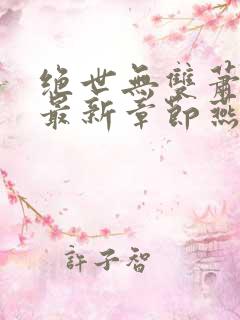 绝世無雙蕭
最新章節燕
許子智